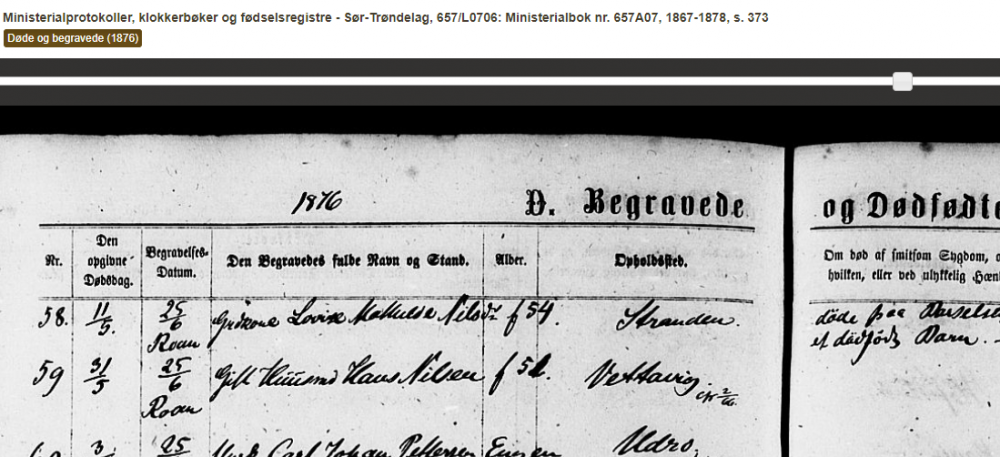 Ministerialprotokoller, klokkerbøker og fødselsregistre - Sør-Trøndelag, 657/L0706: Ministerialbok nr. 657A07, 1867-1878, s. 373
Døde og begravede (1876)
1876 D. Begravede og Dødfødte
Nr. Den opgivne Dødsdag. Begravelses-Datum. Den Begravedes fulde Navn og Stand. Alder. Opholdssted. Om død af smitsom Sygdom, o
hvilken, eller ved ulykkelig Hæn
58. 11/5. 25/6 Roan Grdkone Lovise Mathilde Nilsdr f 54. Stranden. døde paa Barselse
et dødfødt Barn.
59 31/5 25/6 Roan Gift Huusmd Hans Nilsen f 51. Vettavig
3 25 Carl Johan Pettersen Udro.